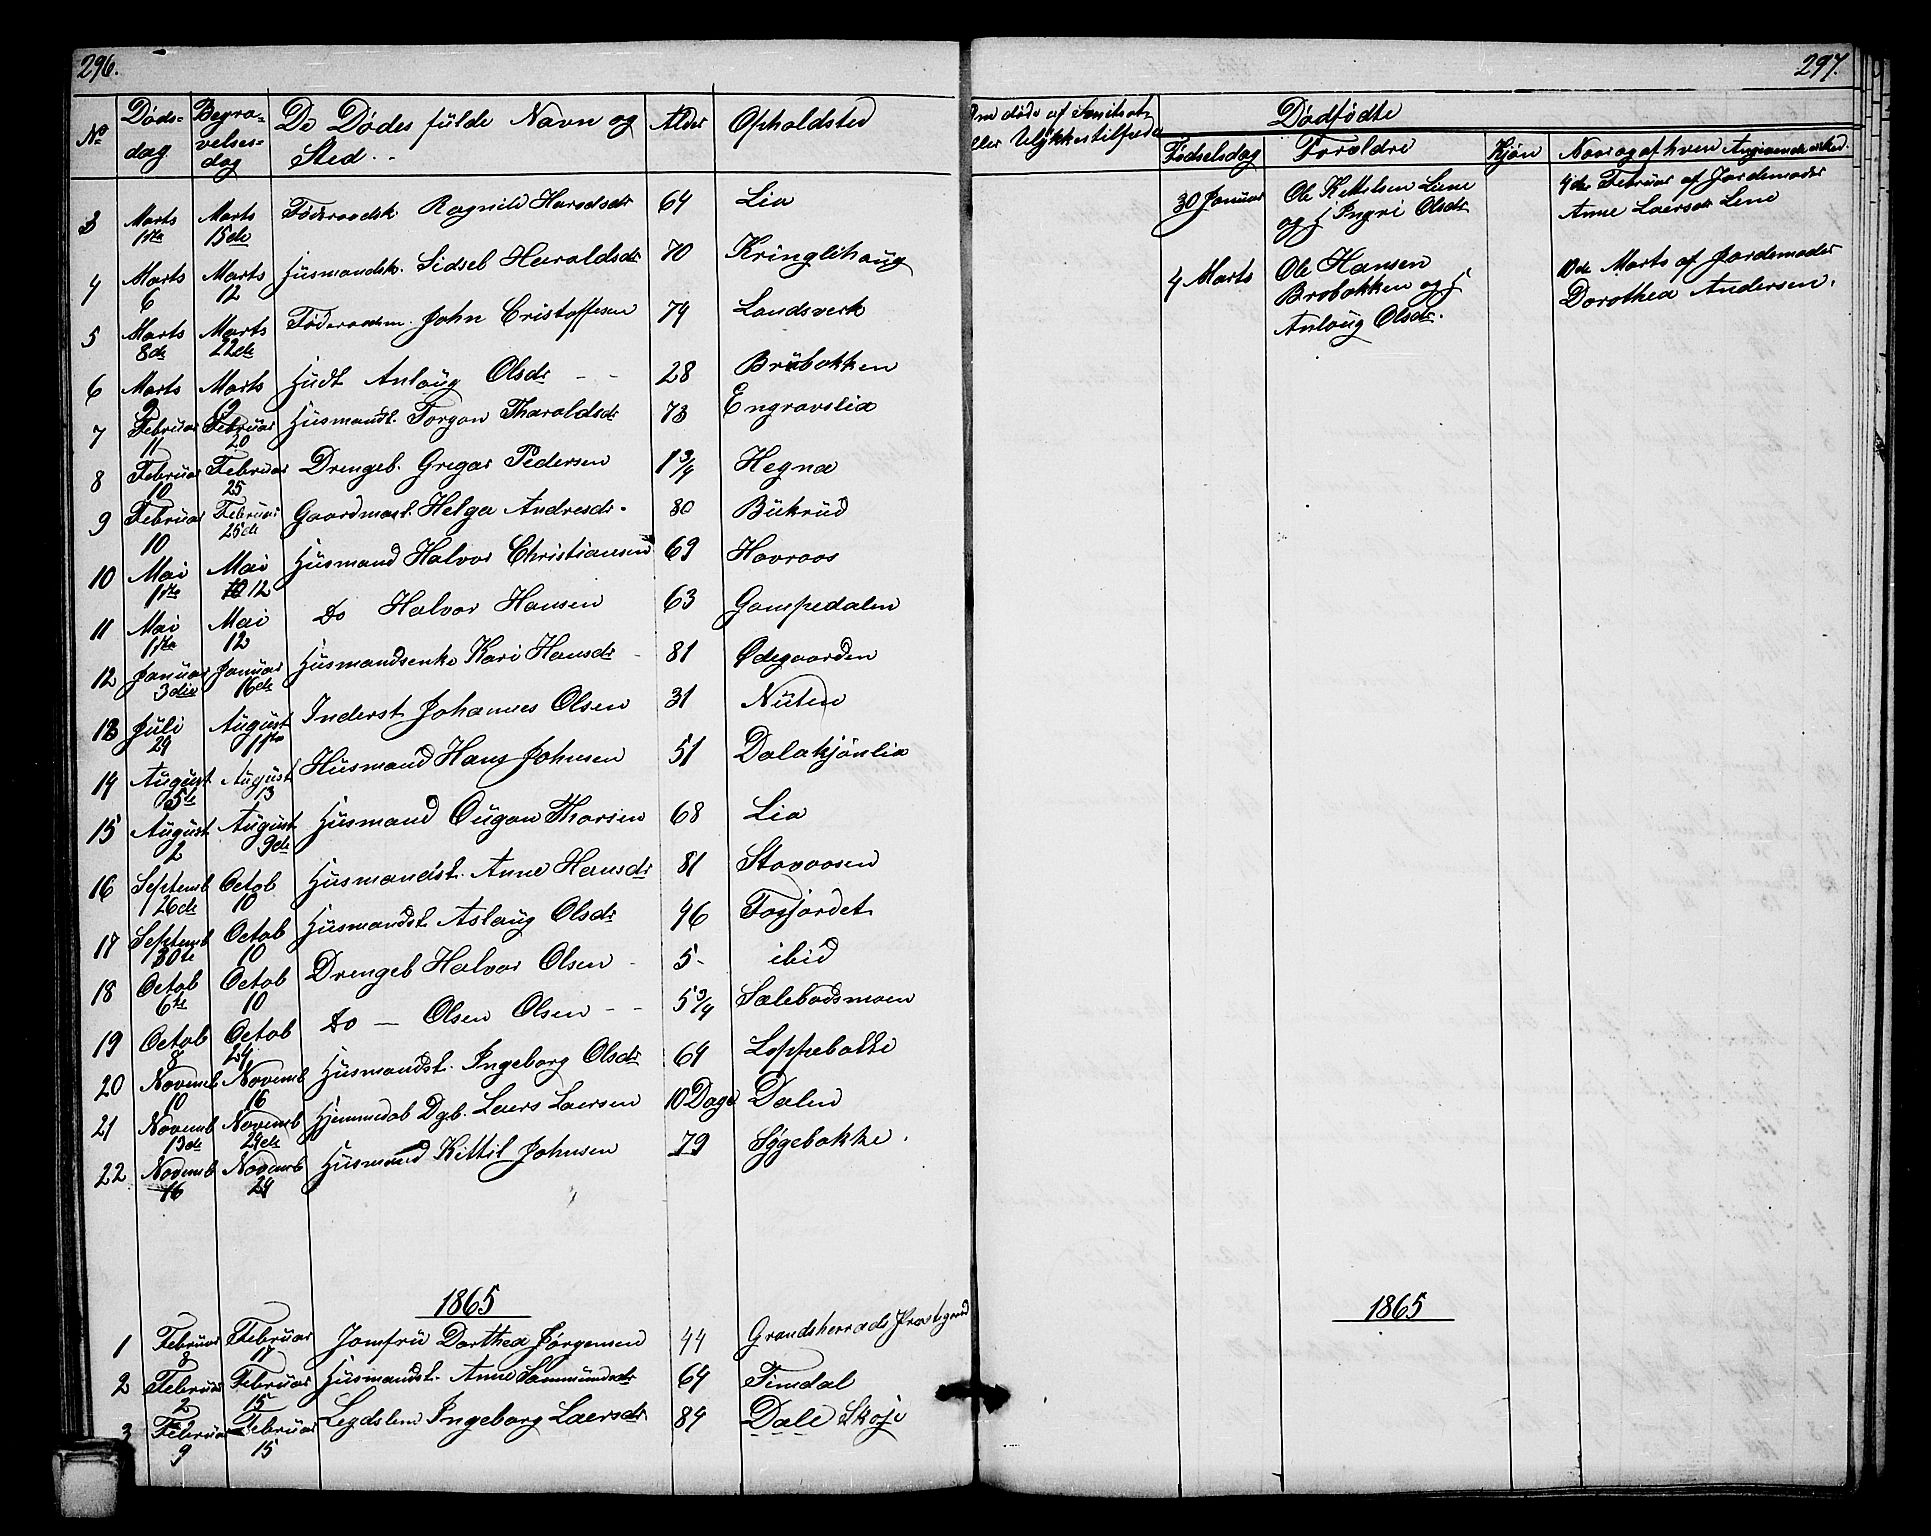 296.
No Døds-dag Begra-velses-dag De Dødes fulde Navn og Sted Alder Opholdsted
3 Marts 1ste Marts 15de Føderaadsk. Ragnild Haroldsdr 64 Lia
4 Marts 6 Marts 12 Husmandsk. Sidsel Haraldsdr 70 Kringlehaug
5 Marts 8de Marts 22de Føderaadm. John Cristoffesen 74 Landsverk
6 Marts 9 Marts Anlaug Olsdr 28 Brubakken
7 Februar 11 Februar 20 Husmandk. Torgon Tharaldsdr 73 Engravslia
8 Februar 10 Februar 25 Drengeb. Gregar Pedersen 1 3/4 Hegna
9 Februar 10 Februar 25de Helga Andresdr 80 Bukrud
10 Mai 1ste Mai 12 Husmand Halvor Christiansen 69 Havraas
11 Mai 1ste Mai 12 Do Halvor Hansen 63 Gampedalen
12 Januar 3die Januar 16de Husmandsenke Kari Hansdr 81 Ødegaarden
13 Juli 29 August 11te Inderst Johannes Olsen 31 Nuten
14 August 5te August 13 Husmand Hans Johnsen 51 Dalatjønlia
15 August 2 August 9de Husmand Ougon Tharsen 68 Lia
16 Septemb 26de Octob 10 Husmandsk. Anne Hansdr 81 Stavaasen
17 Septemb 30te Octob 10 Husmandsk. Aslaug Olsdr 46
18 Octob 6te Octob 10 Drengeb Halvor Olsen 5 ibid
19 Octob 8 Octob 24 Do — Olsen Olsen 5 3/4 Sælebodsmoen
20 Novemb 10 Novemb 16 Husmandsk. Ingeborg Olsdr 64 Loppebakke
21 Novemb 13de Novemb 29de Hjemmedøb Dgb. Laers Laersen 10 Dage Dalen
22 Novemb 16 Novemb 24 Husmand Kittil Johnsen 79
1865
1 Februar 8 Februar 17 Jomfru Dorthea Jørgensen 44 Grandsherrads Præstegaard
2 Februar 2 Februar 15 Husmandsk. Anne Sammundsdr 64 Timdal
3 Februar 9 Februar 15 Legdslem Ingeborg Laersdr 84 Dale Skoje
297.
Om døde af Smitsot eller Ulykkestilfælde Dødfødte
Fødselsdag Forældre Kjøn Naar og af hven Angivende
30 Januar Ole Kettelsen Liene
og h Ingri Olsdr
4de Februar af Jordemoder
Anne Laersdr Lene
4 Marts Ole Hansen
Brobakken og h
Anlaug Olsdr.
10de Marts af Jordemoder
Dorothea Andersen.
1865